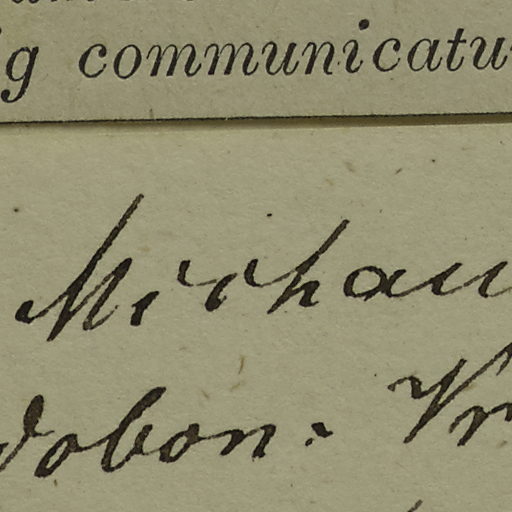 ig communicatu
Michau
dobon. Vr